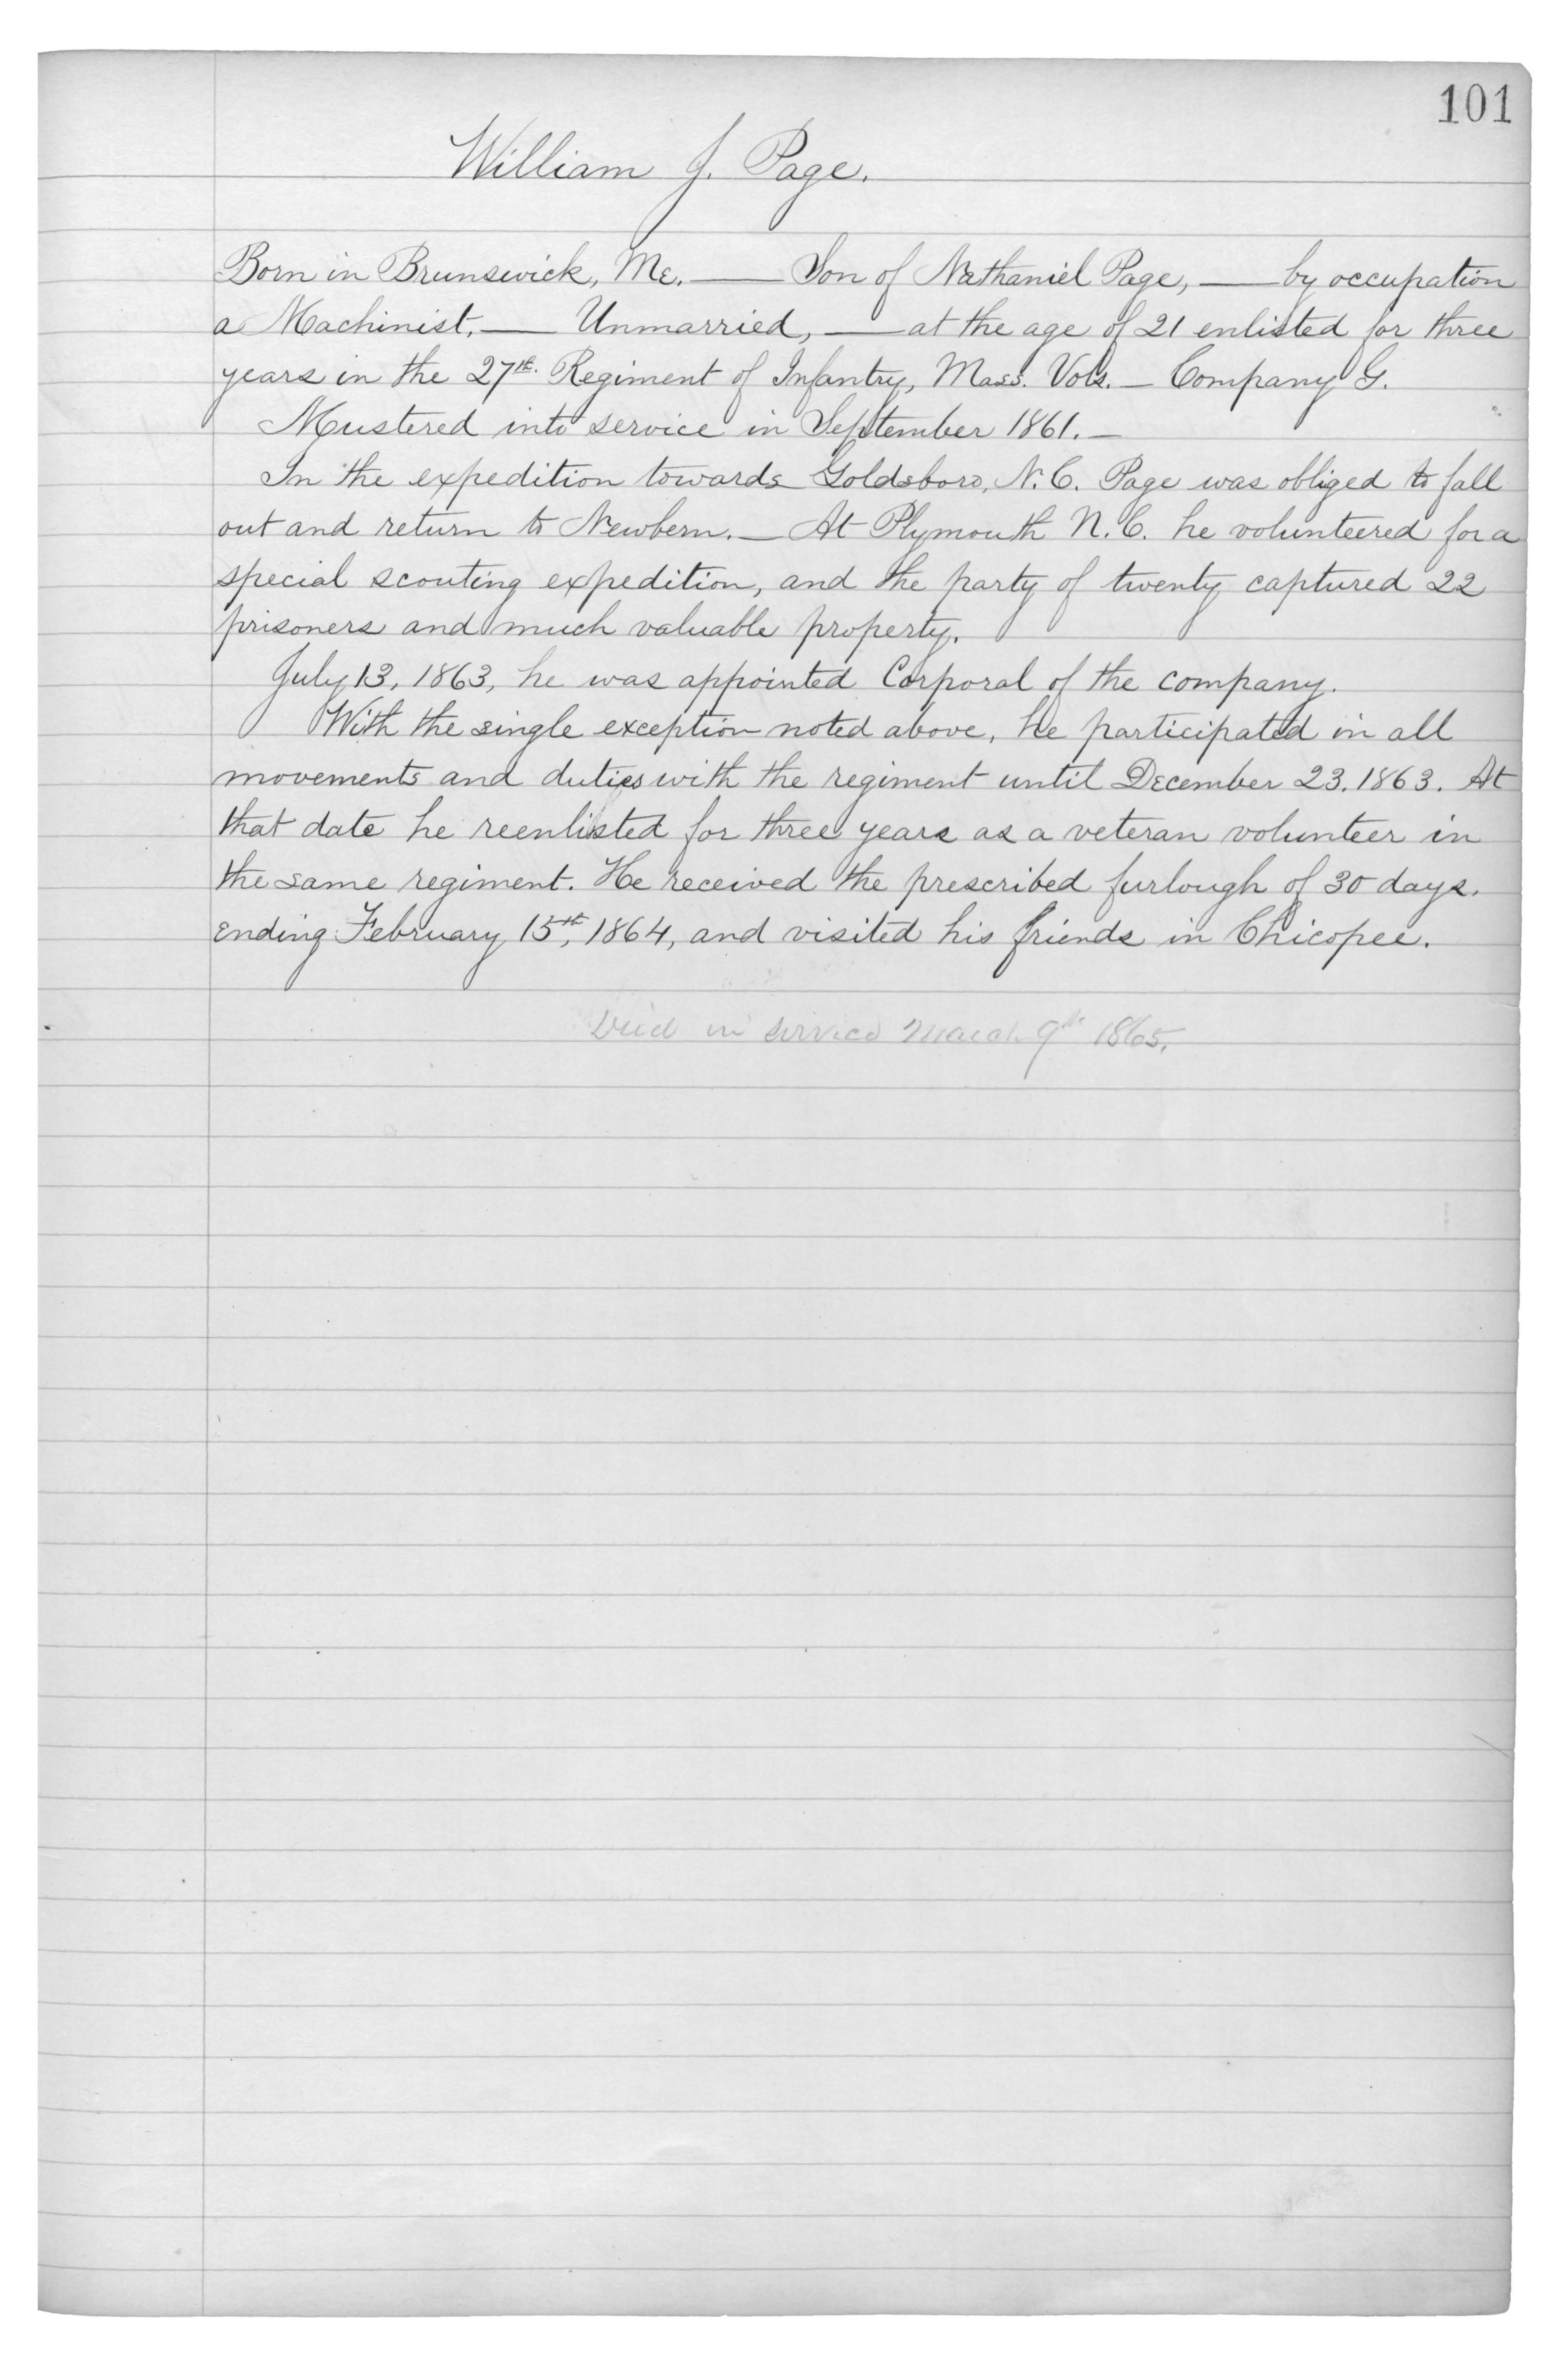 101
William J. Page.
Born in Brunswick, Me. — Son of Nathaniel Page, — by occupation
a Machinist, — Unmarried, — at the age of 21 enlisted for three
years in the 27th. Regiment of Infantry, Mass. Vols. — Company G.
Mustered into service in September 1861. —
In the expedition towards Goldsboro, N.C. Page was obliged to fall
out and return to Newbern. — At Plymouth N.C. he volunteered for a
special scouting expedition, and the party of twenty captured 22
prisoners and much valuable property.
July 13, 1863, he was appointed Corporal of the company.
With the single exception noted above, he participated in all
movements and duties with the regiment until December 23. 1863. At
that date he reenlisted for three years as a veteran volunteer in
the same regiment. He received the prescribed furlough of 30 days.
ending February 15th, 1864, and visited his friends in Chicopee.
Died in service March 9th 1865.